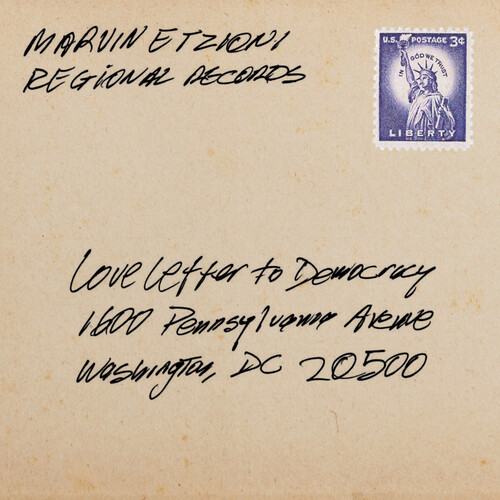 MARVIN ETZIONI
REGIONAL RECORDS
U.S. POSTAGE 3¢
IN GOD WE TRUST
LIBERTY
Love Letter to Democracy
1600 Pennsylvania Avenue
Washington, DC 20500